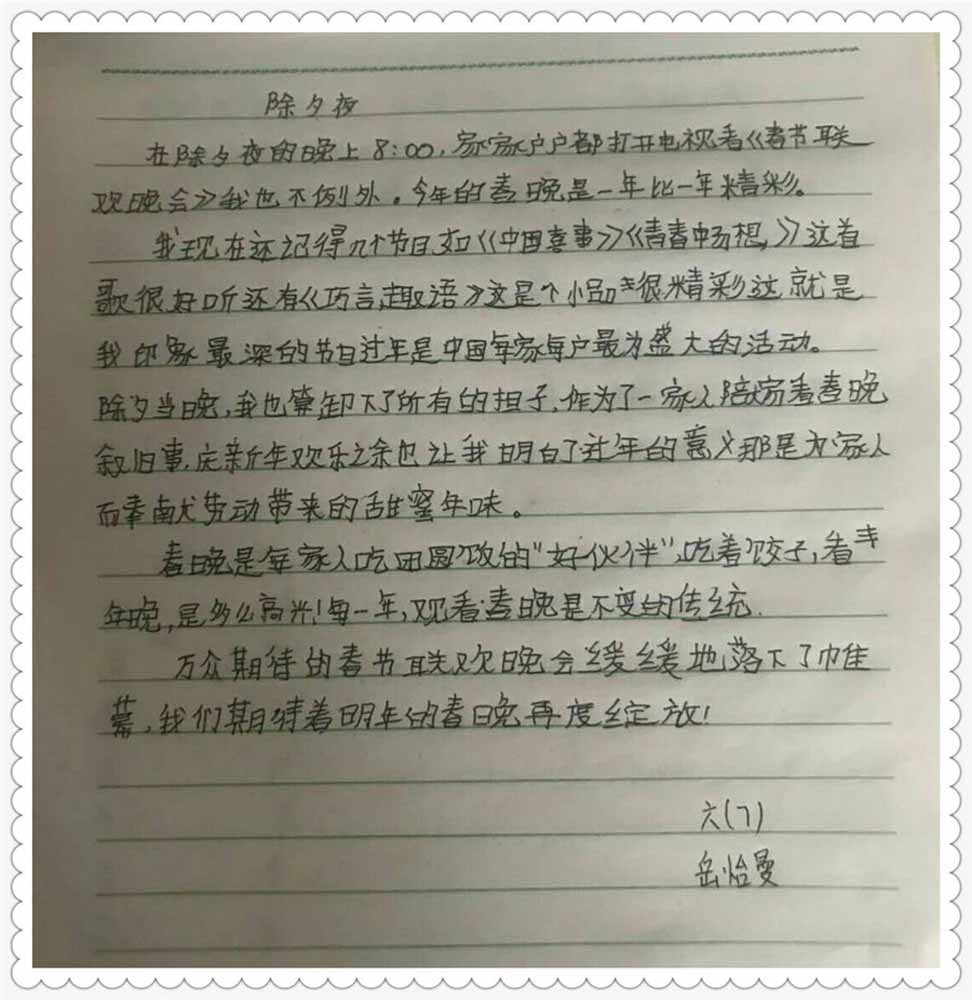 除夕夜
在除夕夜的晚上8:00，家家户户都打开电视看《春节联
欢晚会》我也不例外。今年的春晚是一年比一年精彩。
我现在还记得几个节目如《中国喜事》《青春畅想》这首
歌很好听还有《巧言趣语》这是个小品 很精彩这就是
我印象最深的节目过年是中国每家每户最为盛大的活动。
除夕当晚，我也算卸下了所有的担子，作为了一家人陪家看春晚
叙旧事，庆新年欢乐之余也让我明白了过年的意义那是为家人
而奉献劳动带来的甜蜜年味。
春晚是每家人吃团圆饭的“好伙伴”，吃着饺子，看
年晚，是多么高兴！每一年，观看春晚是不变的传统.
万众期待的春节联欢晚会缓缓地落下了帷
幕，我们期待着明年的春晚再度绽放！
六(7)
岳怡曼